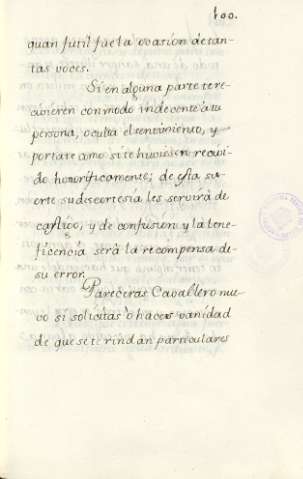 100.
quan futil fue la ocasión de tan-
tas voces.
Si en alguna parte te re-
civieren con modo indecente a tu
persona, oculta el sentimiento, y
portate como si te huviesen recivi-
do honoríficamente; de esta su-
erte su descortesia les servirá de
castigo, y de confusion y la bene-
ficencia será la recompensa de
su error.
Pareceras Cavallero nue-
vo si solicitas ò haces vanidad
de que se te rindan particulares